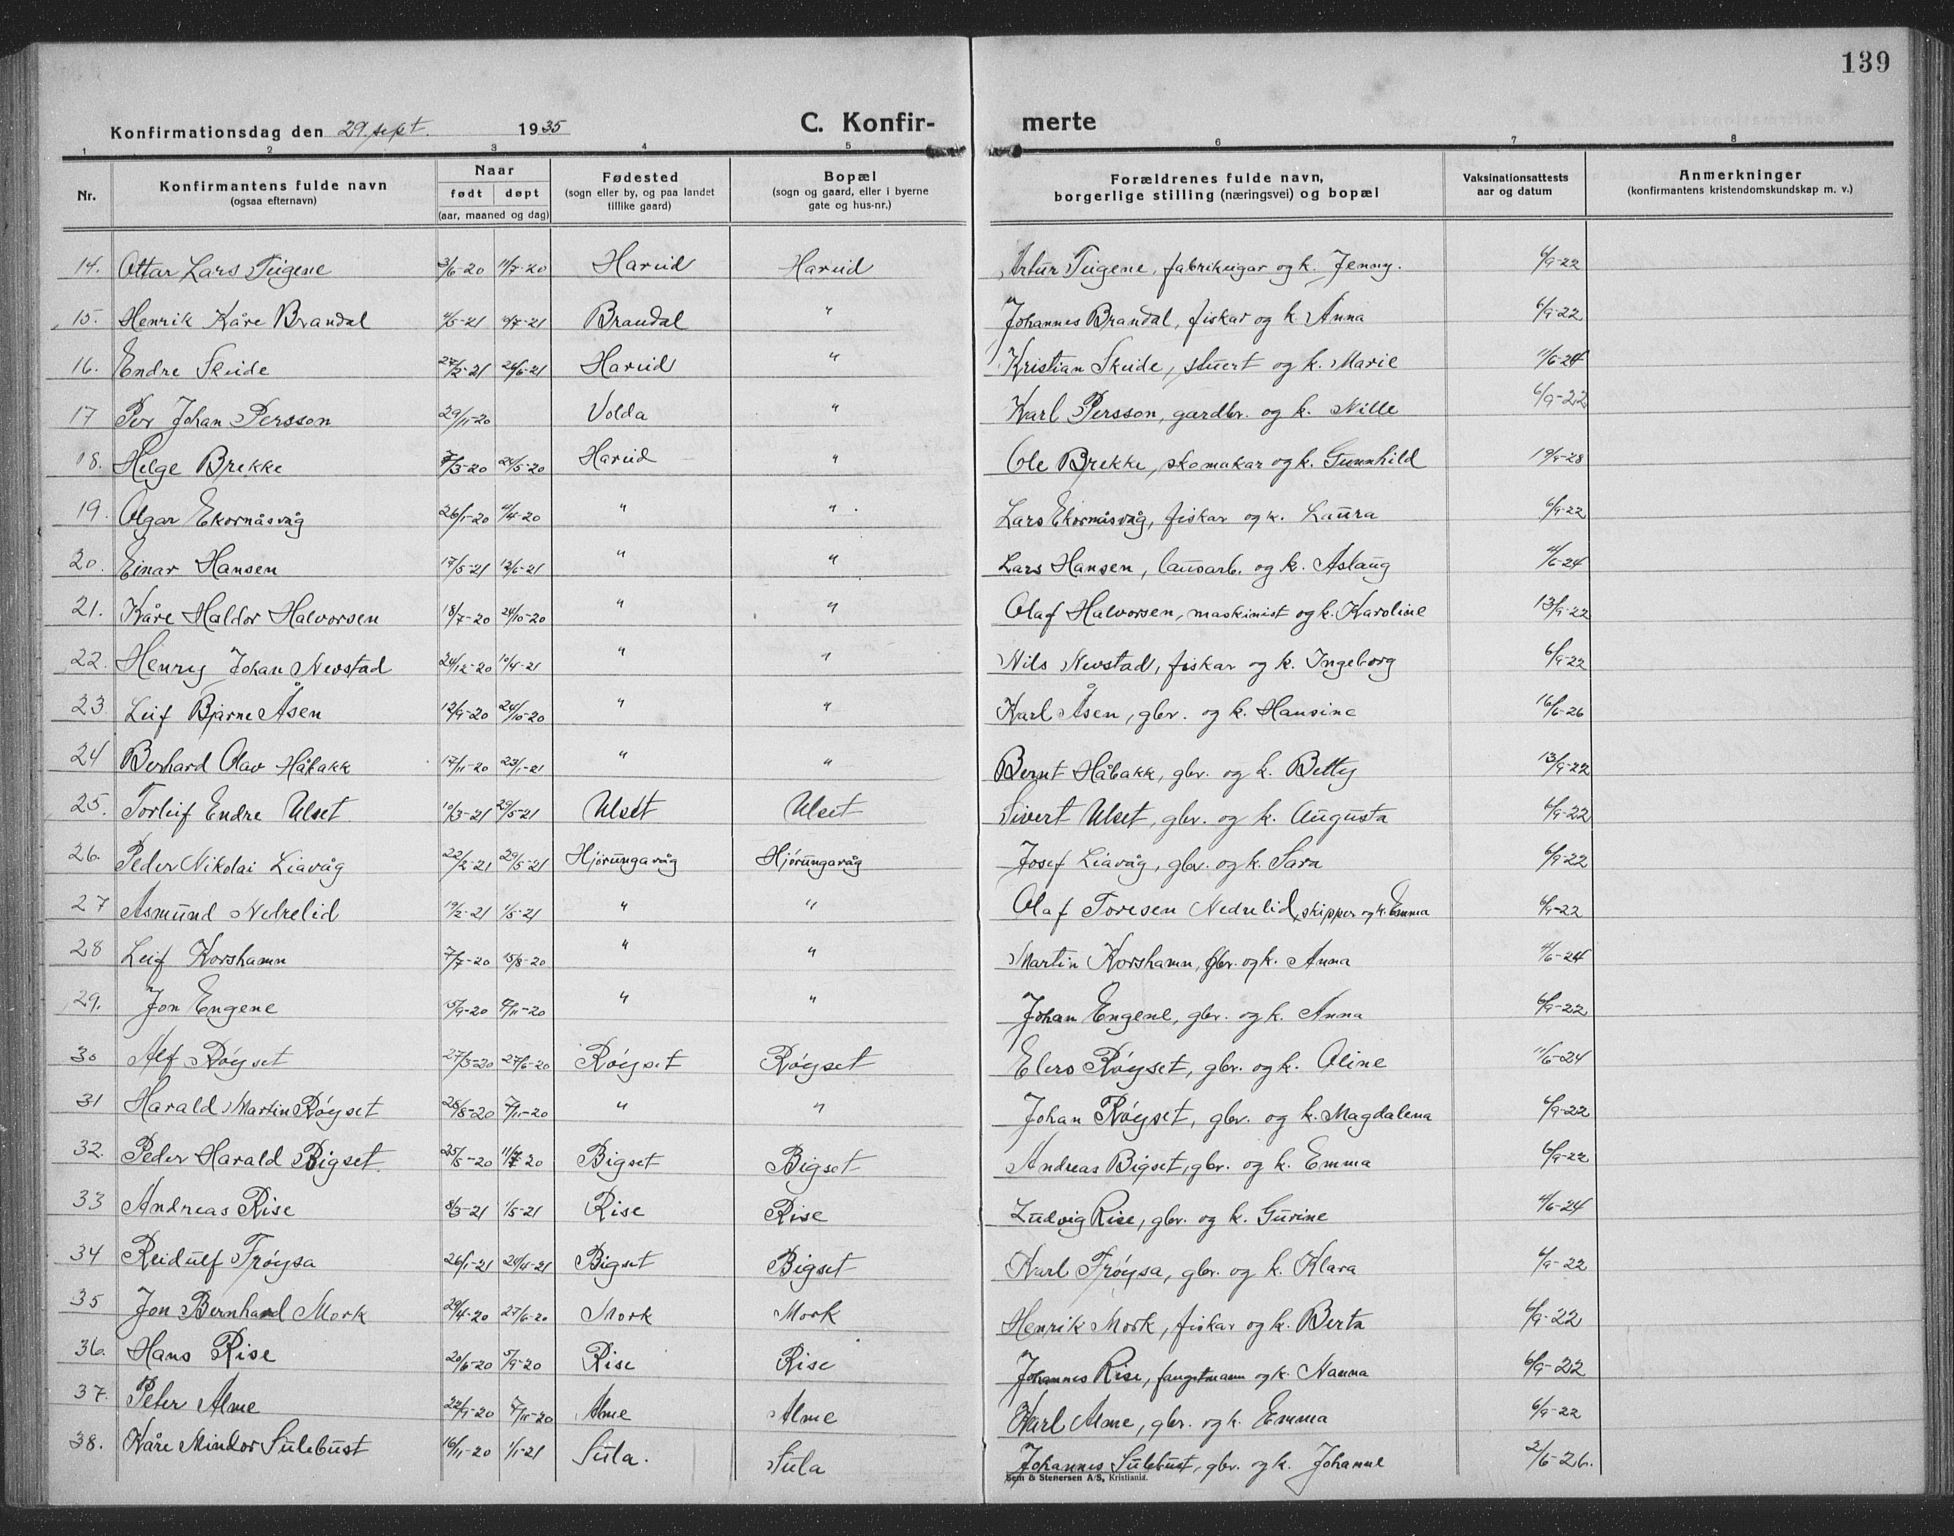 139
Konfirmationsdag den 29. sept. 1935 C. Konfir- merte
1 2 3 4 5 6 7 8
Nr. Konfirmantens fulde navn (ogsaa efternavn) Naar født døpt (aar, maaned og dag) Fødested (sogn eller by, og paa landet tillike gaard) Bopæl (sogn og gaard, eller i byerne gate og hus-nr.) Forældrenes fulde navn, borgerlige stilling (næringsvei) og bopæl Vaksinationsattests aar og datum Anmerkninger (konfirmantens kristendomskundskap m. v.)
14. Ottar Lars Teigene 3/6-20 11/7-20 Hareid Hareid Artur Teigene, fabrikeigar og k. Jenny. 6/9-22
15. Henrik Kåre Brandal Brandal " Johannes Brandal, fiskar og k. Anna 6/9-22
16. Endre Skeide 27/2-21 26/6-21 Hareid " Kristian Skeide, stuert og k. Marie 11/6-24
17 Per Johan Persson 29/11-20 Volda " Karl Persson, gardbr. og k. Nille 6/9-22
18. Helge Brekke 24/5-20 Hareid " Ole Brekke, skomakar og k. Gunnhild
19. Olgar Ekornåsvåg 26/1-20 " " Lars Ekornåsvåg, fiskar og k. Laura 6/9-22
20. Einar Hansen 17/5-21 12/6-21 " " Lars Hansen, lausarb. og k. Aslaug 11/6-24
21. Kåre Haldor Halvorsen 18/7-20 24/10-20 " " Olaf Halvorsen, maskinist og k. Karoline 13/9-22
22. Henry Johan Nevstad 10/4-21 " " Nils Nevstad, fiskar og k. Ingeborg 6/9-22
23. Leif Bjarne Åsen 12/9-20 24/10-20 " " Karl Åsen, gbr. og k. Hansine 16/6-26
24 Berhard Olav Håbakk 17/11-20 23/1-21 " " Bernt Håbakk, gbr. og k. Betty 13/9-22
25. Torleif Endre Ulset 10/3-21 29/5-21 Ulset Ulset Sivert Ulset, gbr. og k. Augusta 6/9-22
26. Peder Nikolai Liavåg 22/2-21 29/5-21 Hjørungavåg Hjørungavåg Josef Liavåg, gbr. og k. Sara 6/9-22
27 Asmund Nedrelid 19/2-21 1/5-21 " " Olaf Toresen Nedrelid, skipper og k. Emma 6/9-22
28 Leif Korshamn 7/7-20 15/8-20 " " Martin Korshamn, gbr. og k. Anna 11/6-24
29. Jon Engene 15/9-20 " " Johan Engene, gbr. og k. Anna 6/9-22
30 Alf Røyset 27/3-20 27/6-20 Røyset Røyset Elers Røyset, gbr. og k. Oline 11/6-24
31 Harald Martin Røyset 28/8-20 7/11-20 " " Johan Røyset, gbr. og k. Magdalena 6/9-22
32. Peder Harald Bigset 25/5-20 11/7-20 Bigset Bigset Andreas Bigset, gbr. og k. Emma 6/9-22
33 Andreas Rise 8/3-21 1/5-21 Rise Rise Ludvig Rise, gbr. og k. Gurine 11/6-24
34 Reidulf Frøysa 26/1-21 24/4-21 Bigset Bigset Karl Frøysa, gbr. og k. Klara 6/9-22
35 Jon Bernhard Mork 29/4-20 27/6-20 Mork Mork Henrik Mork, fiskar og k. Berta 6/9-22
36. Hans Rise 20/6-20 5/9-20 Rise Rise Johannes Rise, fangstmann og k. Nanna 6/9-22
37. Peter Alme 22/9-20 7/11-20 Alme Alme Karl Alme, gbr. og k. Emma 6/9-22
38. Kåre Mindor Sulebust 16/11-20 1/1-21 Sula. Sula Johannes Sulebust, gbr. og k. Johanne 2/6-26.
Sem & Stenersen A/S, Kristiania.